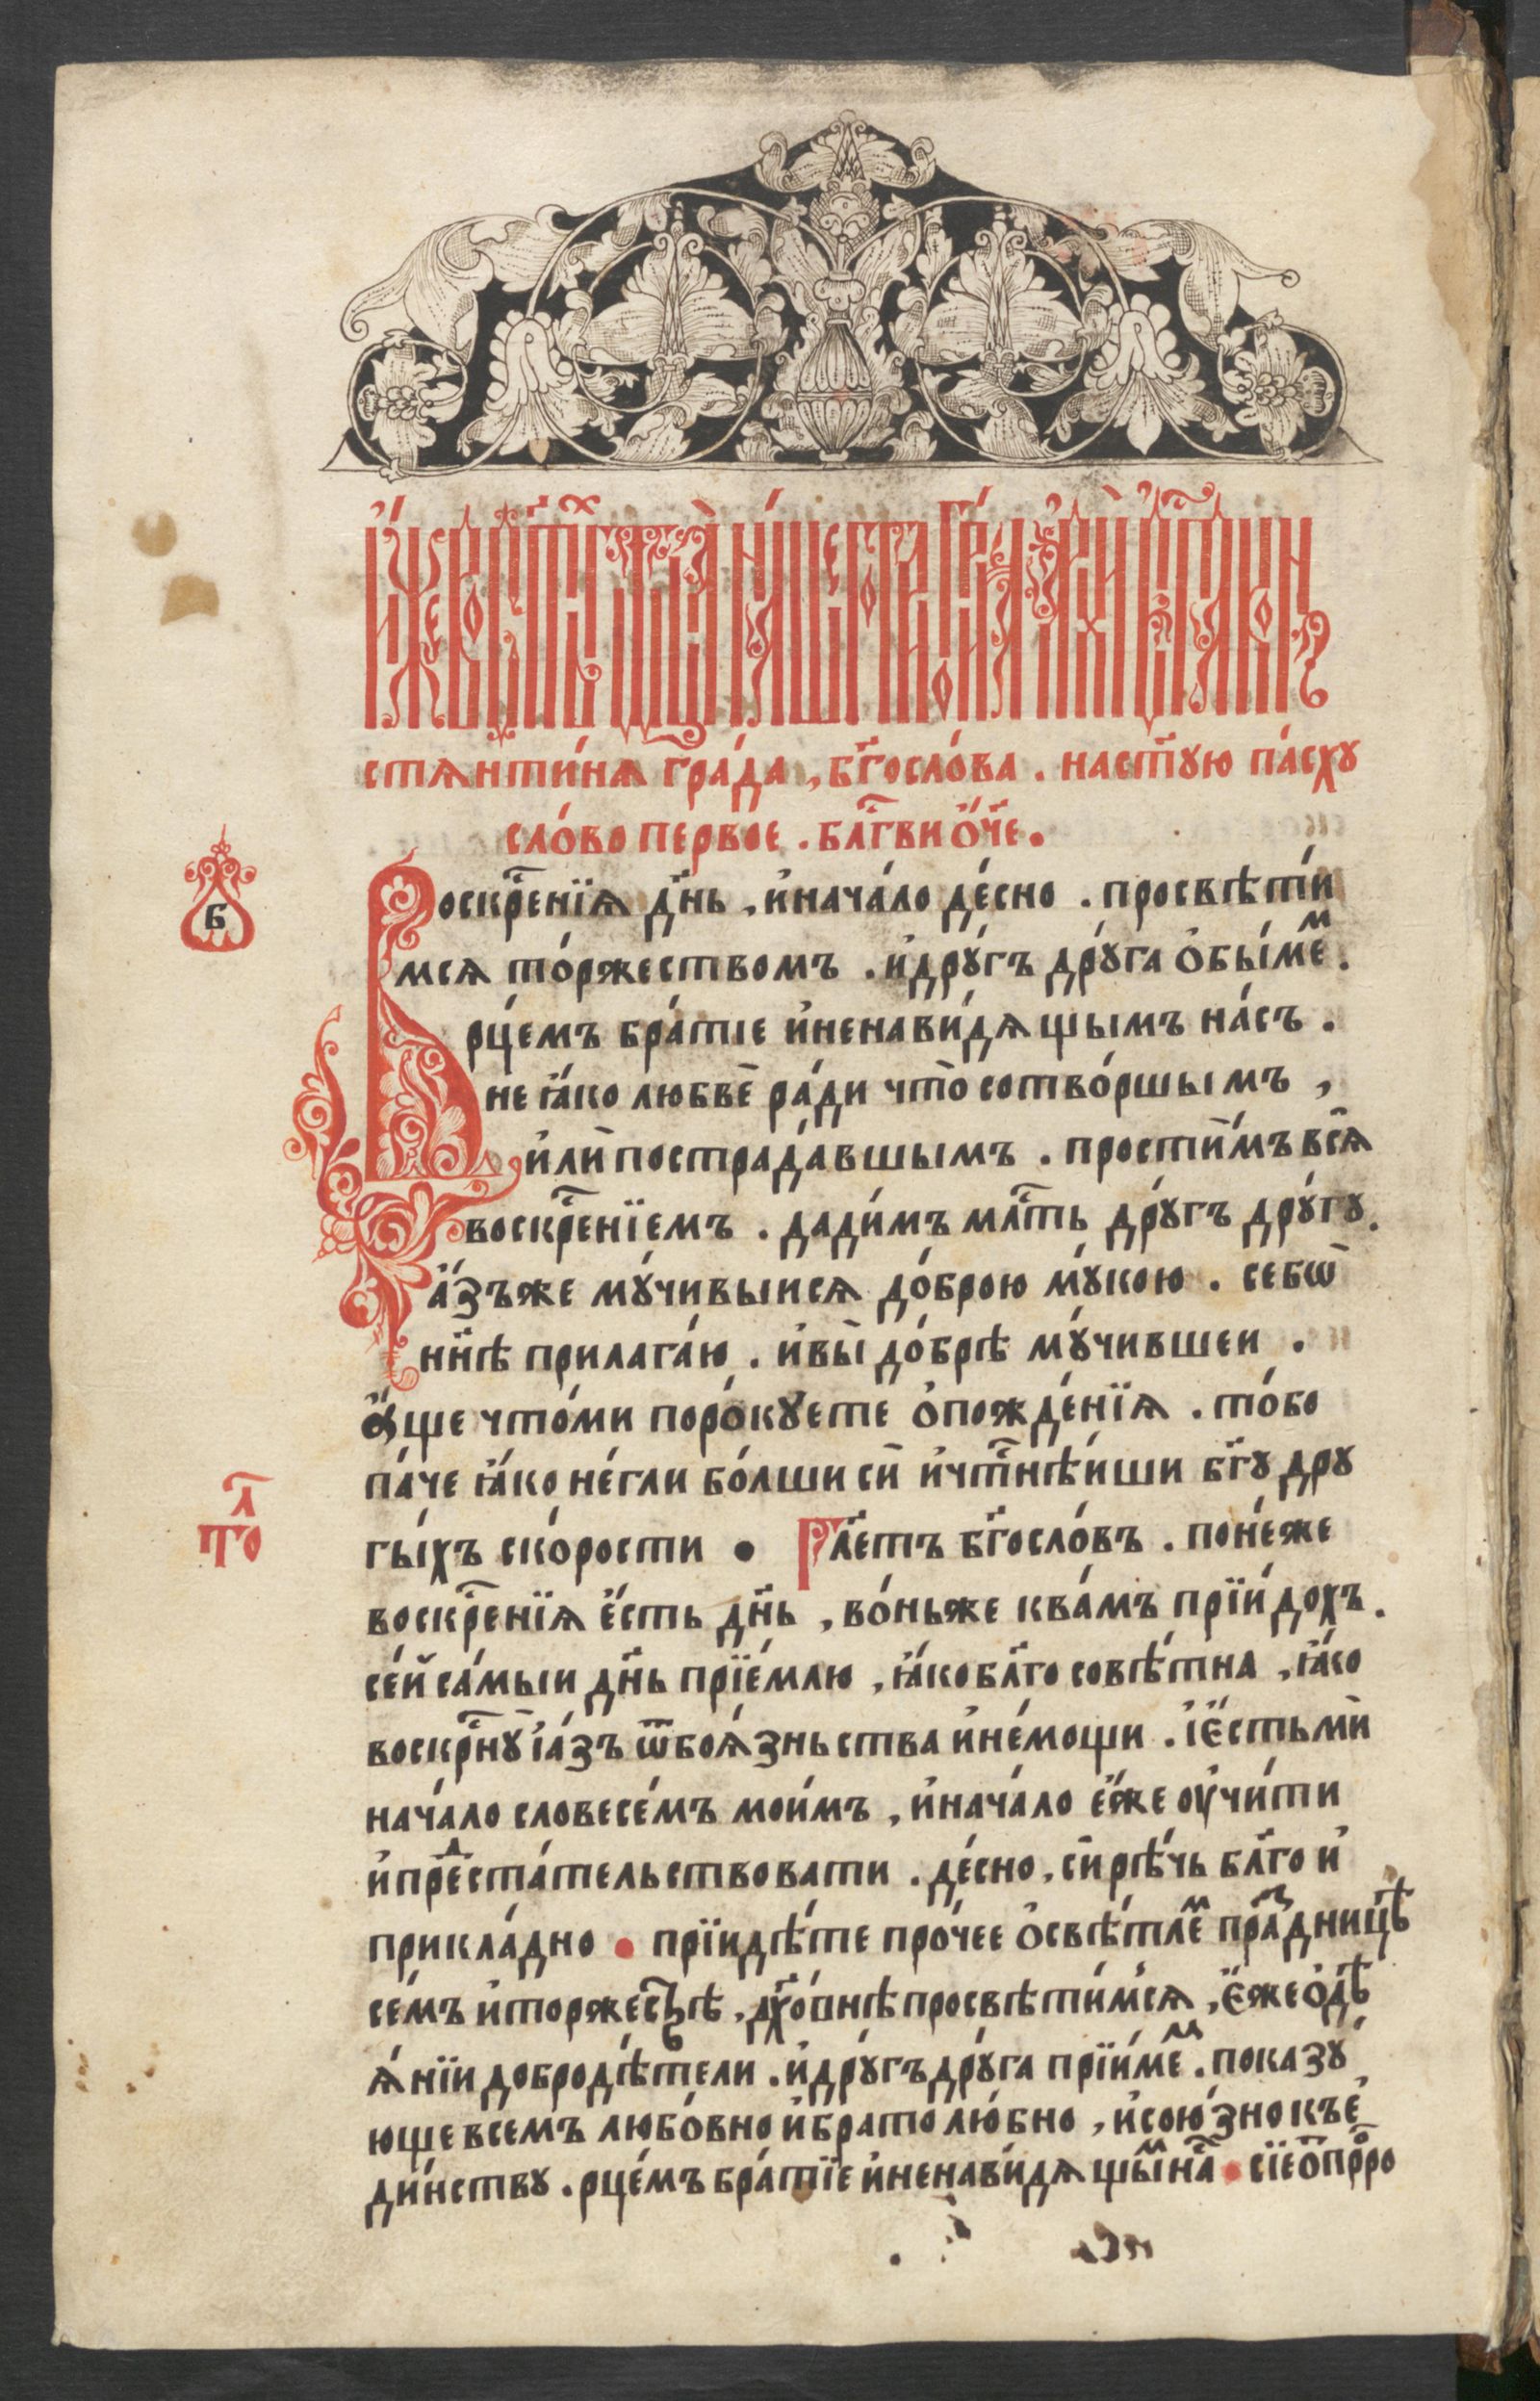 И҆́же во ст҃ы́хъ ѻ҆ц҃а̀ на́шегѡ григо́рїѧ а҆рхїепⷭ҇кпа кон
стѧнти́нѧ гра́да , бг҃осло́ва . настⷮ҇ую па́сху
сло́во пе́рвое . блгⷭ҇ви ѻ҆́ч҃е .
б
Воскрⷭ҇енїѧ дн҃ь , и҆нача́ло де́сно . просвѣти́
мсѧ то́ржествомъ . и҆дрꙋ́гъ дрꙋ́га ѻ҆бы́меⷨ .
рце́мъ бра́тїе и҆ненави́дѧщымъ на́съ .
не ꙗ҆́ко любвѐ ра́ди что̀ сотво́ршымъ ,
и҆лѝ пострада́вшымъ . прости́мъ всѧ̑
воскрⷭ҇енїемъ . дади́мъ млⷭ҇ть дрꙋ́гъ дрꙋ́гꙋ .
а҆́зъже мꙋ́чивыисѧ до́брою мꙋ́кою . себѡ̀
нн҃ѣ прилага́ю . и҆вы̀ до́брѣ мꙋ́чившеи .
а҆́ще что́ми поро́кꙋете ѻ҆пожде́нїѧ . то́бо
па́че ꙗ҆́ко не́гли бо́лши сѝ и҆чтⷭ҇нѣ́иши бг҃ꙋ дрꙋ
гы́хъ ско́рости •
тлⷦ҇о
Гл҃етъ бг҃осло́въ . поне́же
воскрⷭ҇енїѧ є҆́сть дн҃ь , во́ньже ква́мъ прїи́дохъ .
се́й са́мыи дн҃ь прїе́млю , ꙗ҆́ко бл҃го совѣ́тна , ꙗ҆́ко
воскрⷭ҇нꙋ̀ ꙗ҆́зъ ѿбоѧ́зньства и҆не́мощи . і҆є҆́стьмѝ
нача́ло словесе́мъ мои́мъ , и҆нача́ло є҆́же ѹ҆чи́ти
и҆преⷣста́тельствовати . де́сно , си́рѣчь бл҃го и҆
прикла́дно • прїидѣ́те про́чее ѻ҆свѣ́тлеⷨ праⷥдницѣ
се́мъ и҆торжествѣ̀ , дх҃о́внѣ просвѣти́мсѧ , є҆́же ѻ҆дѣ
ѧ́нїи добродѣ́тели . и҆дрꙋ́гъ дрꙋ́га прїи́меⷨ . показꙋ́
юще всемъ любо́вно и҆братолю́бно , и҆сою́зно къ є҆
ди́нствꙋ . рце́мъ бра́тїе и҆ненави́дѧщыⷨ наⷭ • сїе ѻ҆ прⷪ҇ро